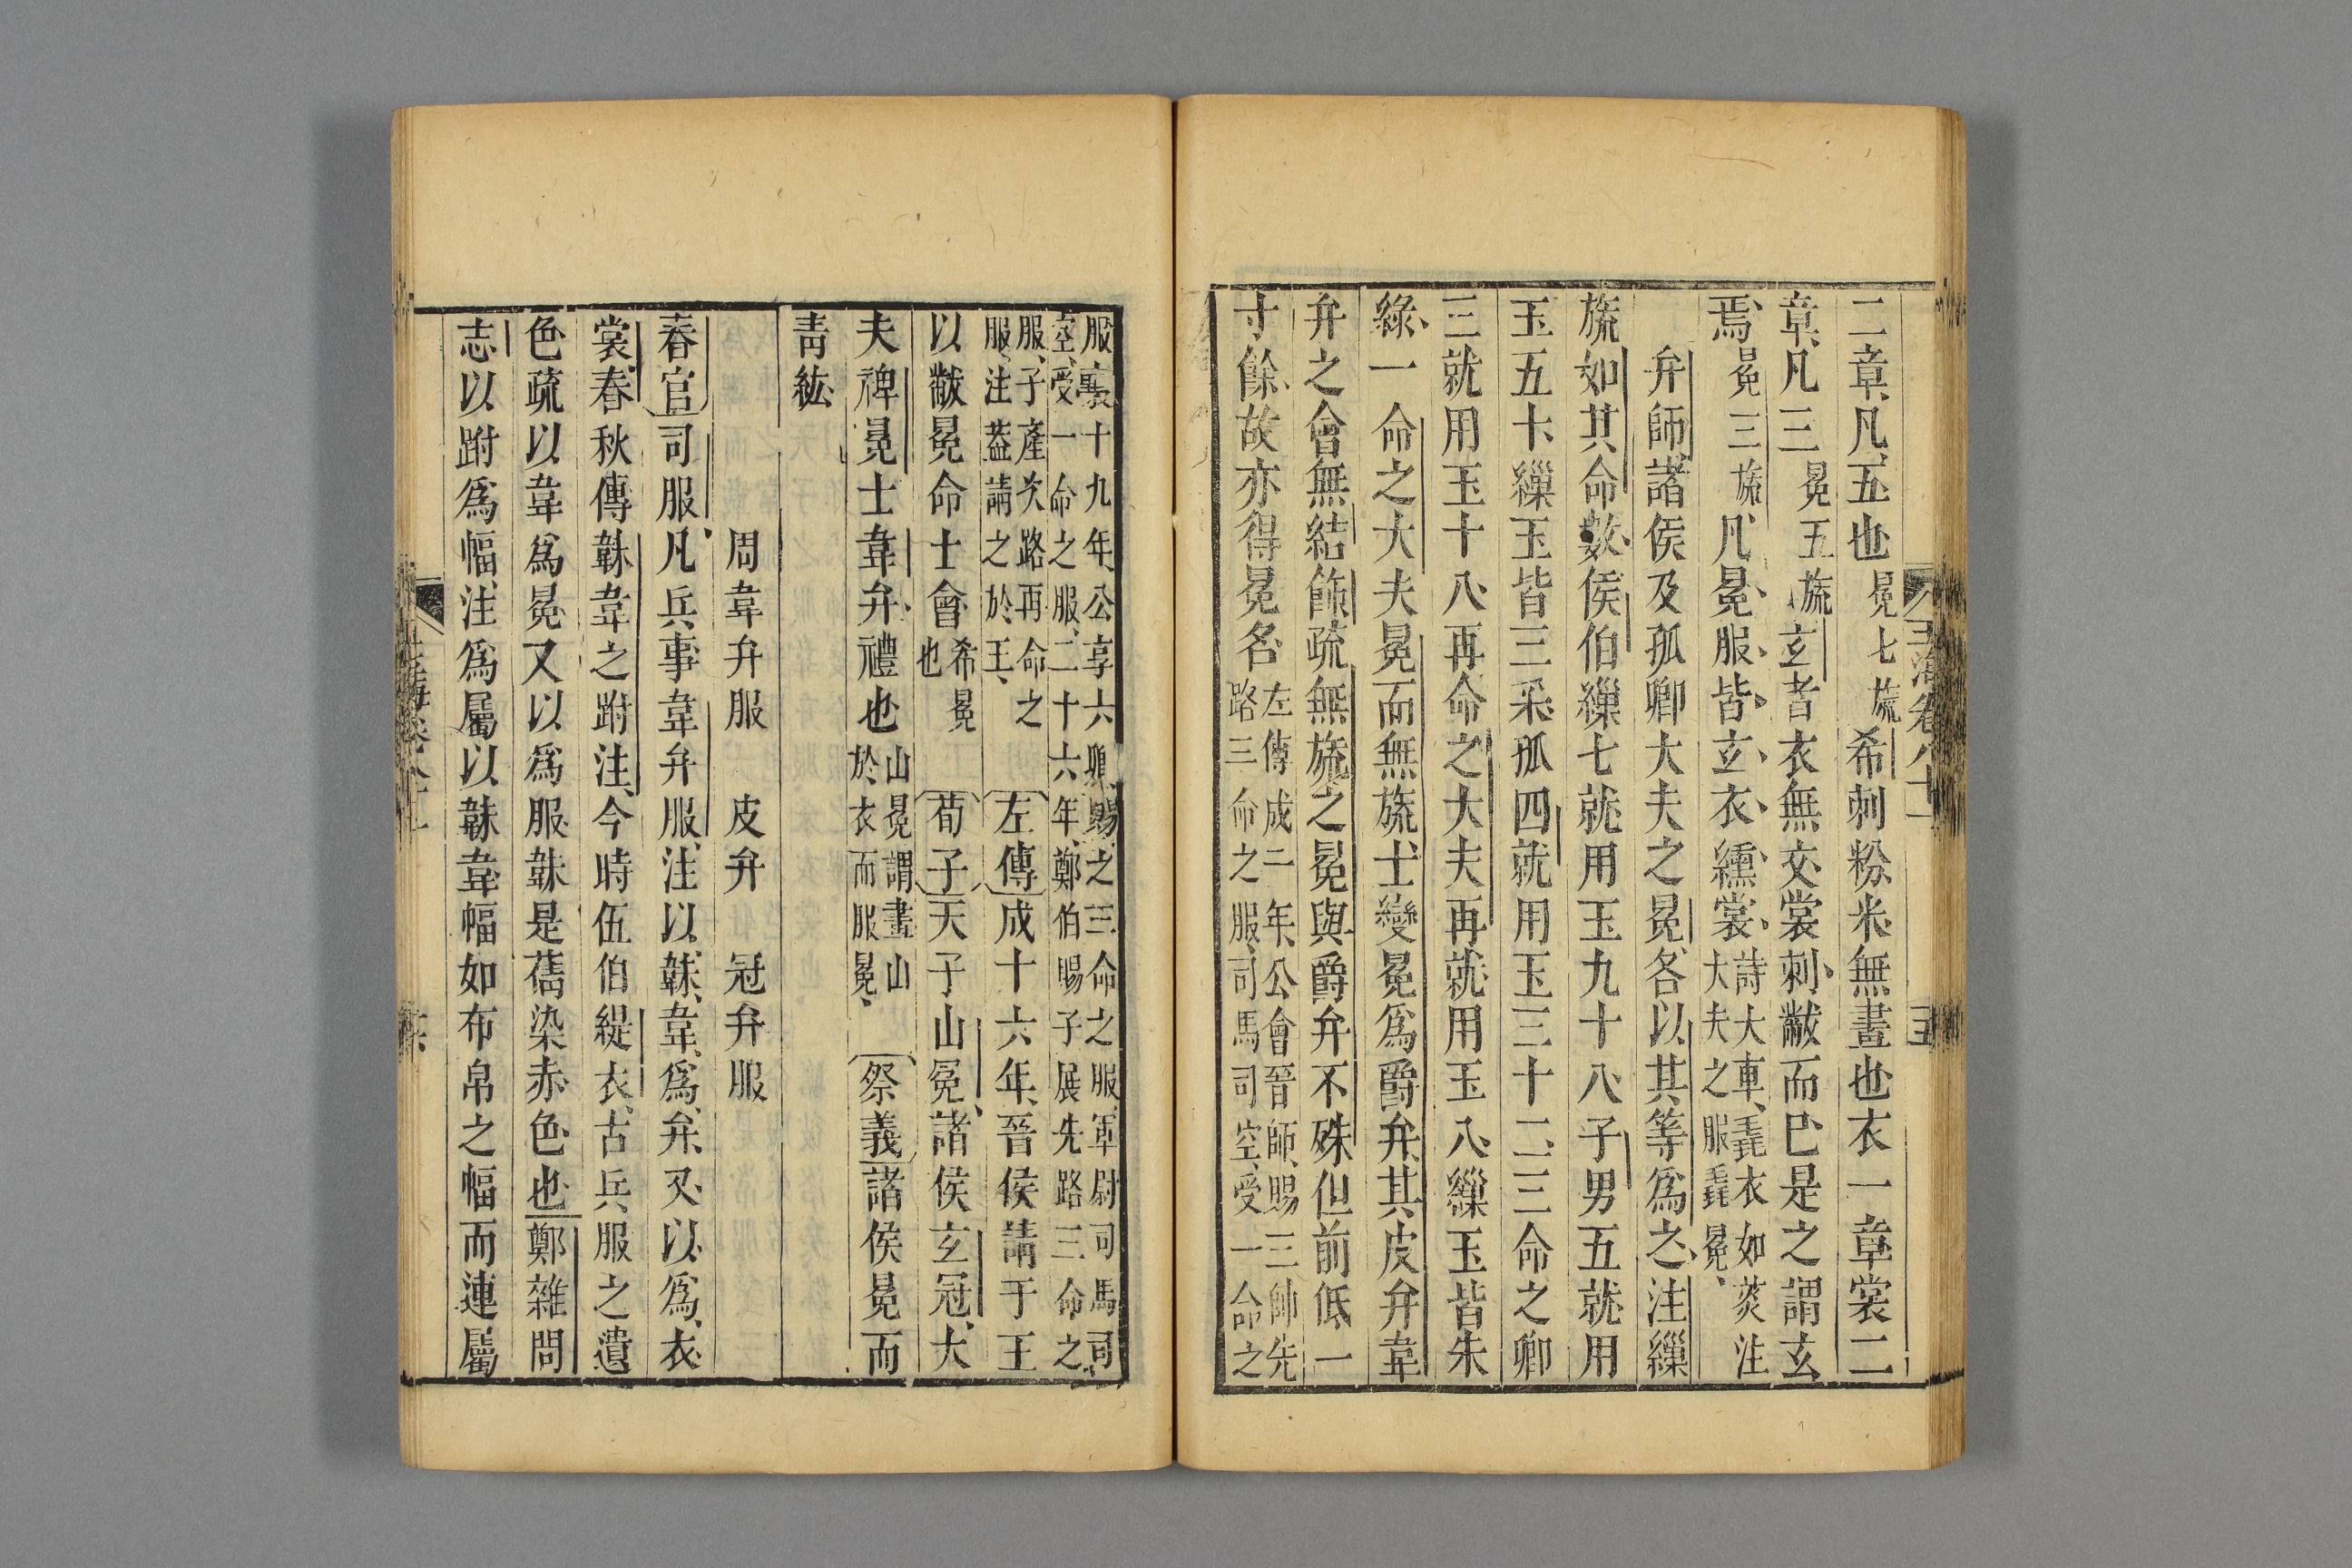 二章凡五也冕七旒希刺粉米無畫也衣一章裳二
章凡三冕五旒玄者衣無文裳刺黻而巳是之謂玄
焉冕三旒凡冕服皆玄衣纁裳詩大車毳衣如菼注大夫之服毳冕
弁師諸侯及孤卿大夫之冕各以其等爲之注繅
旒如其命數侯伯繅七就用玉九十八子男五就用
玉五十繅玉皆三采孤四就用玉三十二三命之卿
三就用玉十八再命之大夫再就用玉八繅玉皆朱
綠一命之大夫冕而無旒士變冕爲爵弁其皮弁韋
弁之會無結飾疏無旒之冕與爵弁不殊但前低一
寸餘故亦得冕名左傳成二年公會晉師賜三帥先路三命之服司馬司空受一命之
服襄十九年公享六卿賜之三命之服軍尉司馬司空受一命之服二十六年鄭伯賜子展先路三命之
服子產次路再命之服注葢請之於王左傳成十六年晉侯請于王
以黻冕命士會希冕也荀子天子山冕諸侯玄冠大
夫裨冕士韋弁禮也山冕謂畫山於衣而服冕祭義諸侯冕而
靑紘
周韋弁服 皮弁 冠弁服
春官司服凡兵事韋弁服注以韎韋爲弁又以爲衣
裳春秋傳韎韋之跗注今時伍伯緹衣古兵服之遺
色疏以韋爲冕又以爲服韎是舊染赤色也鄭雜問
志以跗爲幅注爲屬以韎韋幅如布帛之幅而連屬